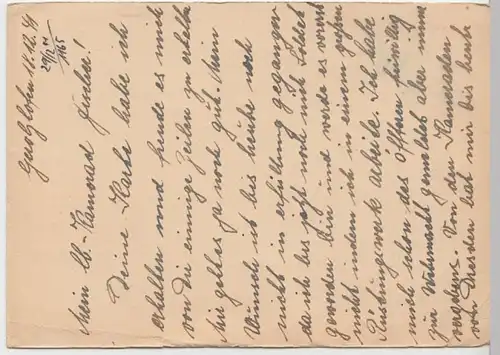 Großlosen 18.12.44
29/12 44
1165
Mein lb. Kamerad Günther!
Deine Karte habe ich
erhalten und freude es mich
von Dir einige Zeilen zu erhalten
Mir geht es ja noch gut. Mein
Wunsch ist bis heute noch
nicht in erfüllung gegangen
da ich bis jetzt noch nicht Soldat
geworden bin und werde es vorerst
nicht indem ich in einem großen
Rüstungswerk arbeite. Ich habe
mich schon des öfteren freiwillig
zur Wehrmacht gemeldet aber immer
vergebens. Von den Kameraden
von Dresden hat mir bis heute